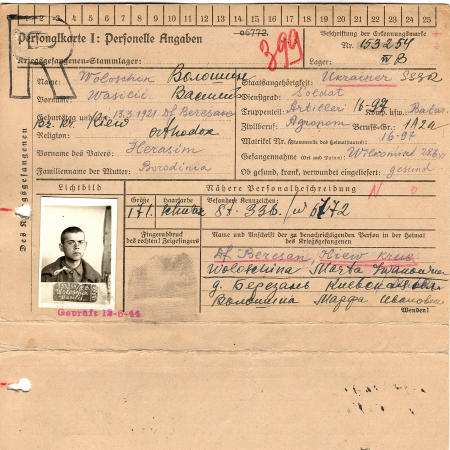 1 2 3 4 5 6 7 8 9 10 11 12 13 14 15 16 17 18 19 20 21 22 23 24 25
Personalkarte I: Personelle Angaben
06772
Beschriftung der Erkennungsmarke
R
399
Nr. 153254
Kriegsgefangenen-Stammlager:
Lager: IV B
Des Kriegsgefangenen
Name: Woloschin Волошин
Staatsangehörigkeit: Ukrainer SSSR
Vorname: Wasilii Василий
Dienstgrad: Soldat
Geburtstag und 13.3.1921 Df. Beresano
Truppenteil: Artilleri 16-97
Bz. Kr. Kiew
Zivilberuf: Agronom Berufs-Gr.:
Religion: Orthodox
Matrikel Nr. 16-97
Vorname des Vaters: Herasim
Gefangennahme (Ort und Datum):
Familienname der Mutter: Borodinia
Ob gesund, krank, verwundet eingeliefert: gesund
Lichtbild
Nähere Personalbeschreibung
N 0
Größe Haarfarbe Besondere Kennzeichen:
171. schwarz
Fingerabdruck des rechten! Zeigefingers
Name und Anschrift der zu benachrichtigenden Person in der Heimat des Kriegsgefangenen
Df. Beresan, Kiew Kreis
Woloschina Marta Iwanowna
д. Березань Киевская обл.
Волошина Марфа Ивановна
Wenden!
Geprüft 12-6-44